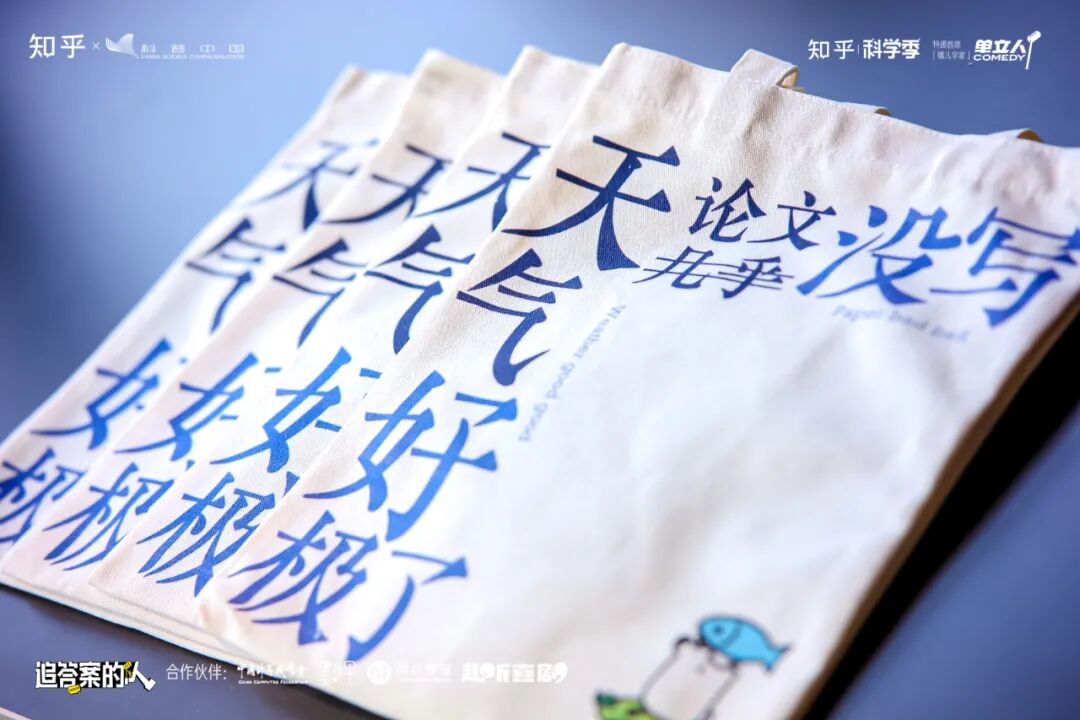 知乎 × 科普中国
CHINA SCIENCE COMMUNICATION
知乎 科学季
特邀首席
「嗑儿学家」
单立人
COMEDY
天气好极了
论文几乎没写
Weather good good
Paper bad bad
天气好极
天气好极
天气好极
追答案的人
合作伙伴:
中国计算机学会
CHINA COMPUTER FEDERATION
趣听喜剧